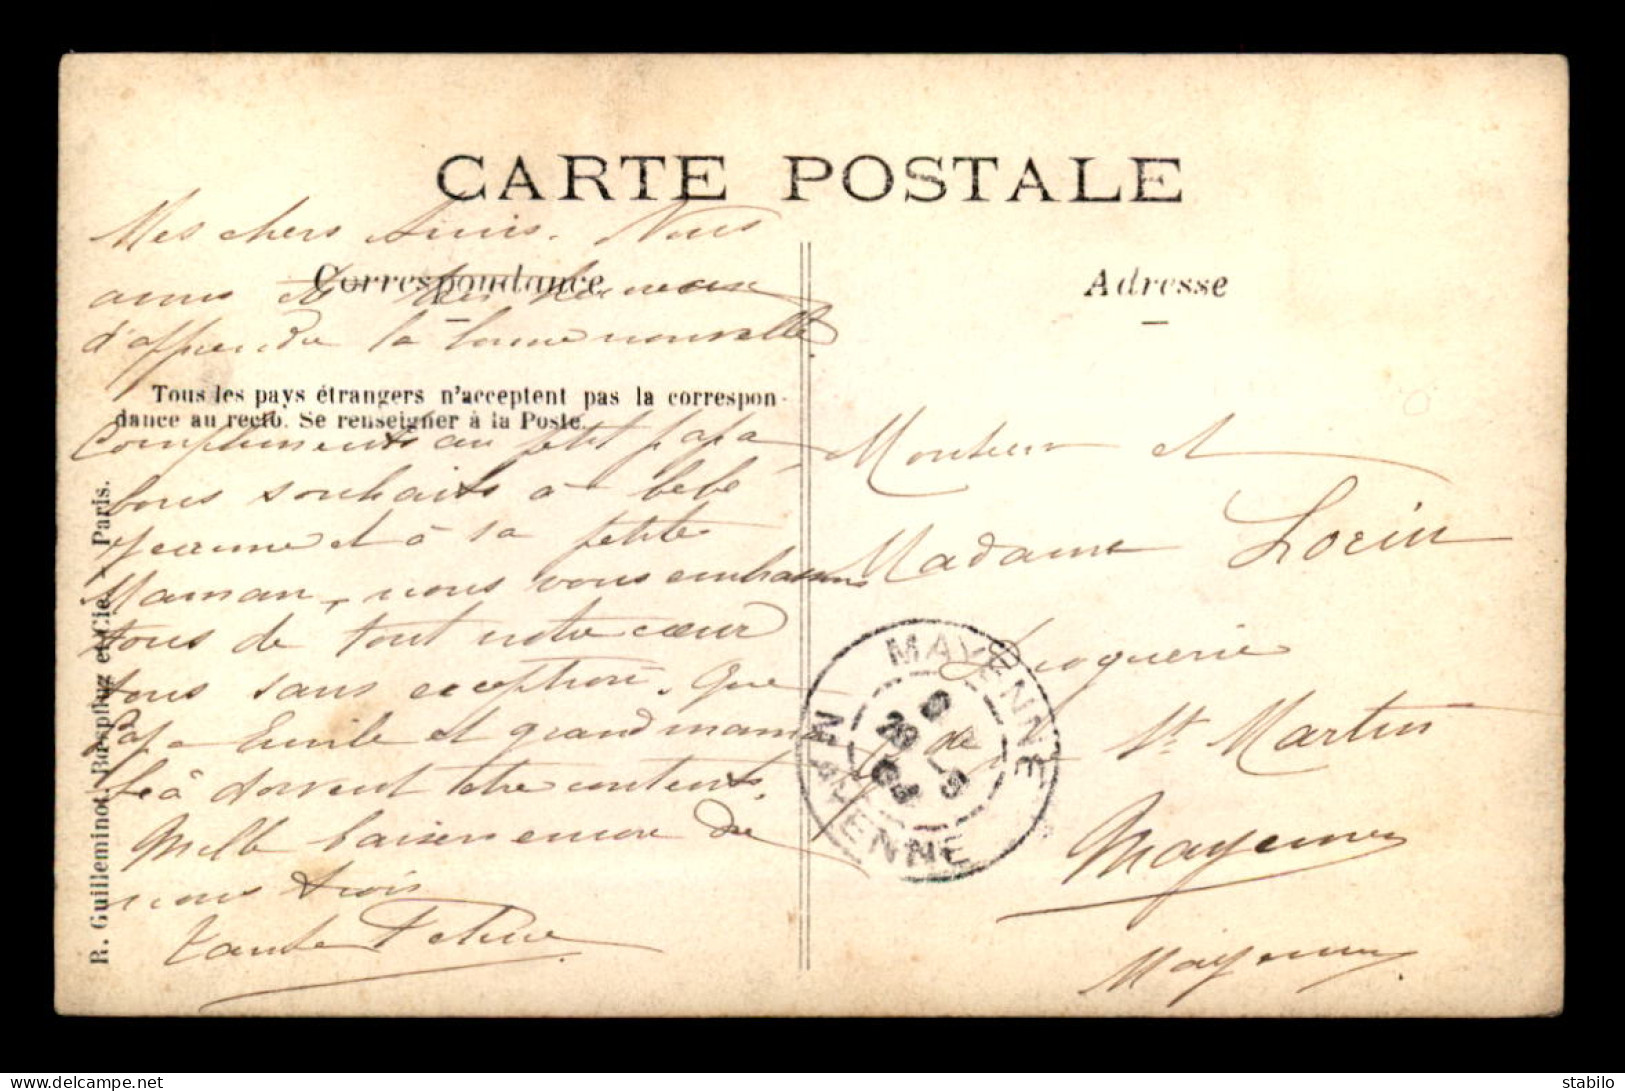 CARTE POSTALE
Correspondance
Adresse
Mes chers Amis. Nous
avons été très heureux
d'apprendre la bonne nouvelle
Tous les pays étrangers n'acceptent pas la correspon-
dance au recto. Se renseigner à la Poste.
Compliments au petit papa
bons souhaits à bébé
et à sa petite
Maman, nous vous embrassons
tous de tout notre cœur
tous sans exception. Que
Papa Emile et grand maman
Léa doivent être contents.
Mille baisers encore de
nous trois
Tante
R. Guilleminot, Bœspflug et Cie. - Paris.
Monsieur et
Madame Lorin
Droguerie
de St Martin
Mayenne
Mayenne
MAYENNE
MAYENNE